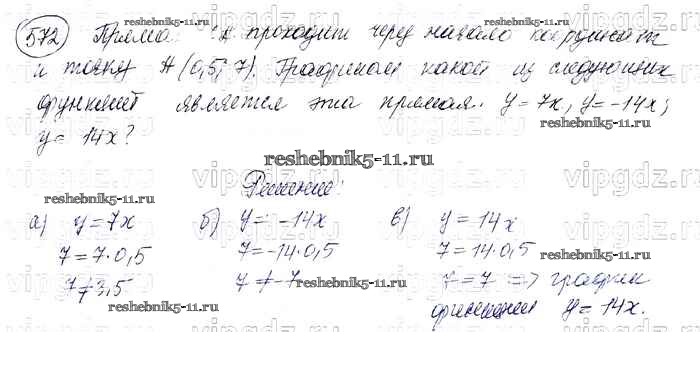 572 Прямая проходит через начало координат
и точку А (0,5; 7). Графиком какой из следующих
функций является эта прямая: y = 7x, y = -14x;
y = 14x?
Решение:
а) y = 7x б) y = -14x в) y = 14x
7 = 7·0,5 7 = -14·0,5 7 = 14·0,5
7 ≠ 3,5 7 ≠ -7 7 = 7 => график
функции y = 14x.
reshebnik5-11.ru
reshebnik5-11.ru
reshebnik5-11.ru
reshebnik5-11.ru
reshebnik5-11.ru
reshebnik5-11.ru
reshebnik5-11.ru
vipgdz.ru
vipgdz.ru
vipgdz.ru